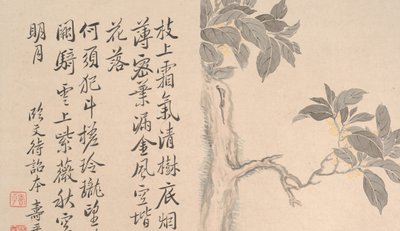 枝上霜氣清樹底烟
薄密葉漏金風空堦
花落
何須犯斗槎玲瓏望
騎雲上紫薇秋
明月
臨文待詔本 壽平